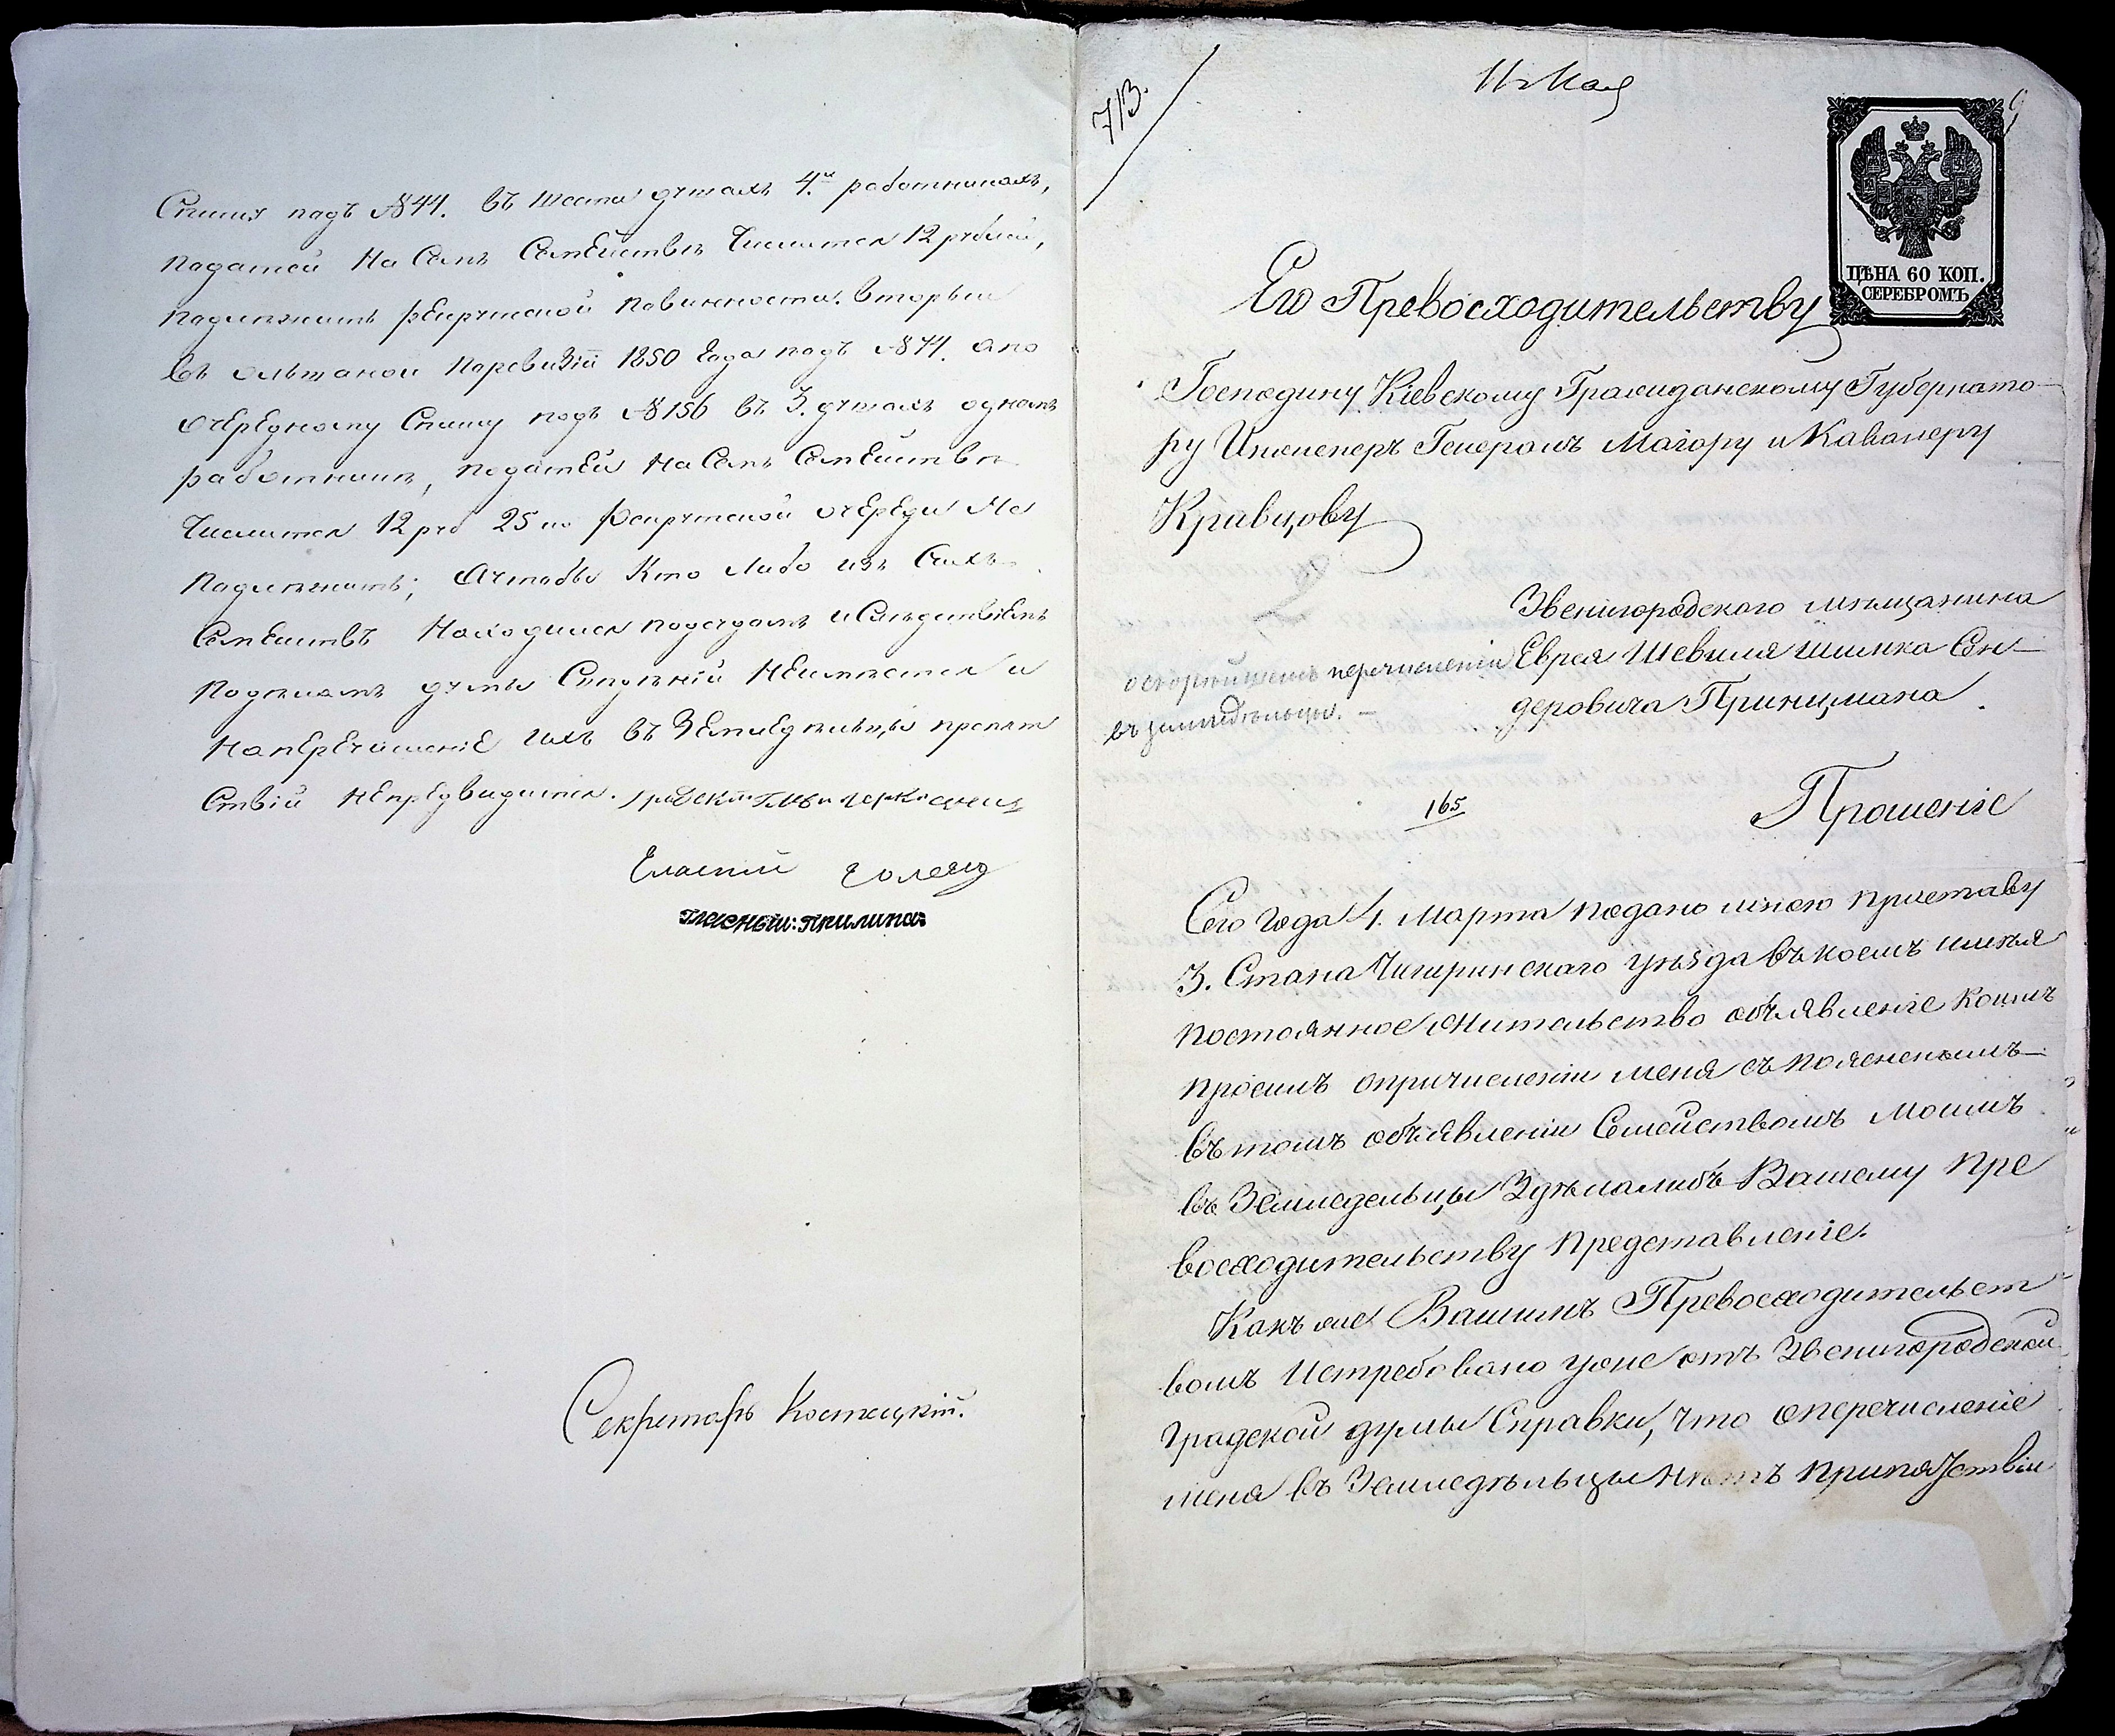 Списка подъ №44. въ шести душахъ 4.х работникахъ,
податей на семъ семействе числится 12 рублей,
подлежитъ рекрутской повинности. вторый
въ Ольшаной поревизіи 1850 года подъ №74. апо
очередному списку подъ №156 въ 3. душахъ одномъ
работнике, податей на семъ семействе
числится 12 руб 25 ко рекрутской очереди не
подлежитъ; ачтобы кто либо изъ сихъ
семействъ находился подсудомъ и следствіемъ
поделамъ думы сведеній неимеется и
наперечисленіе ихъ въ Земледельцы препят
ствій непредвидится.
гласный: Прилипка
Секретарь Костецкій.
713.
11 Мая
9
ЦѢНА 60 КОП.
СЕРЕБРОМЪ
Его Превосходительству
Господину Кіевскому Гражданскому Губернато-
ру Инженеръ Генералъ Маіору и Кавалеру
Кравцову
2
Звенигородского мѣщанина
Еврея Шевеля Шимка Сен-
деровича Принцмана.
о скорѣйшемъ перечисленіи
въ земледѣльцы. —
165
Прошеніе
Сего года 4. Марта подано мною приставу
3. Стана Чигиринскаго уѣзда въ коемъ имѣя
постоянное жительство объявленіе коимъ
просилъ опричисленіи меня съ пояснен­нымъ
въ томъ объявленіи Семействомъ моимъ
въ Земледельцы Здѣлалибъ Вашему Пре
восходительству Представленіе.
Какъ же Вашимъ Превосходительст
вомъ Истребовано уже отъ Звенигородской
Градской думы Справки, что оперечисленіе
меня въ Земледѣльцы нѣтъ припятствіи